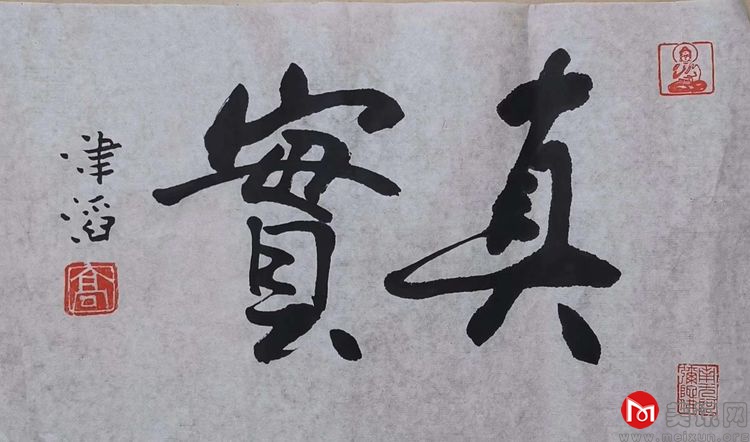 真實
津滔
喬
美讯网
www.meixun.com